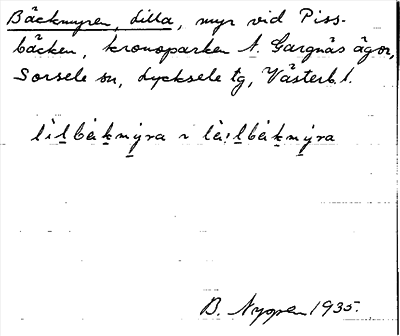 Bäckmyren, Lilla, myr vid Piss-
bäcken, kronoparken N. Gargnäs ägor,
Sorsele sn, Lycksele tg, Västerb. l.
lìlbákmýra ~ là:lbákmýra
B. Nygren 1935.